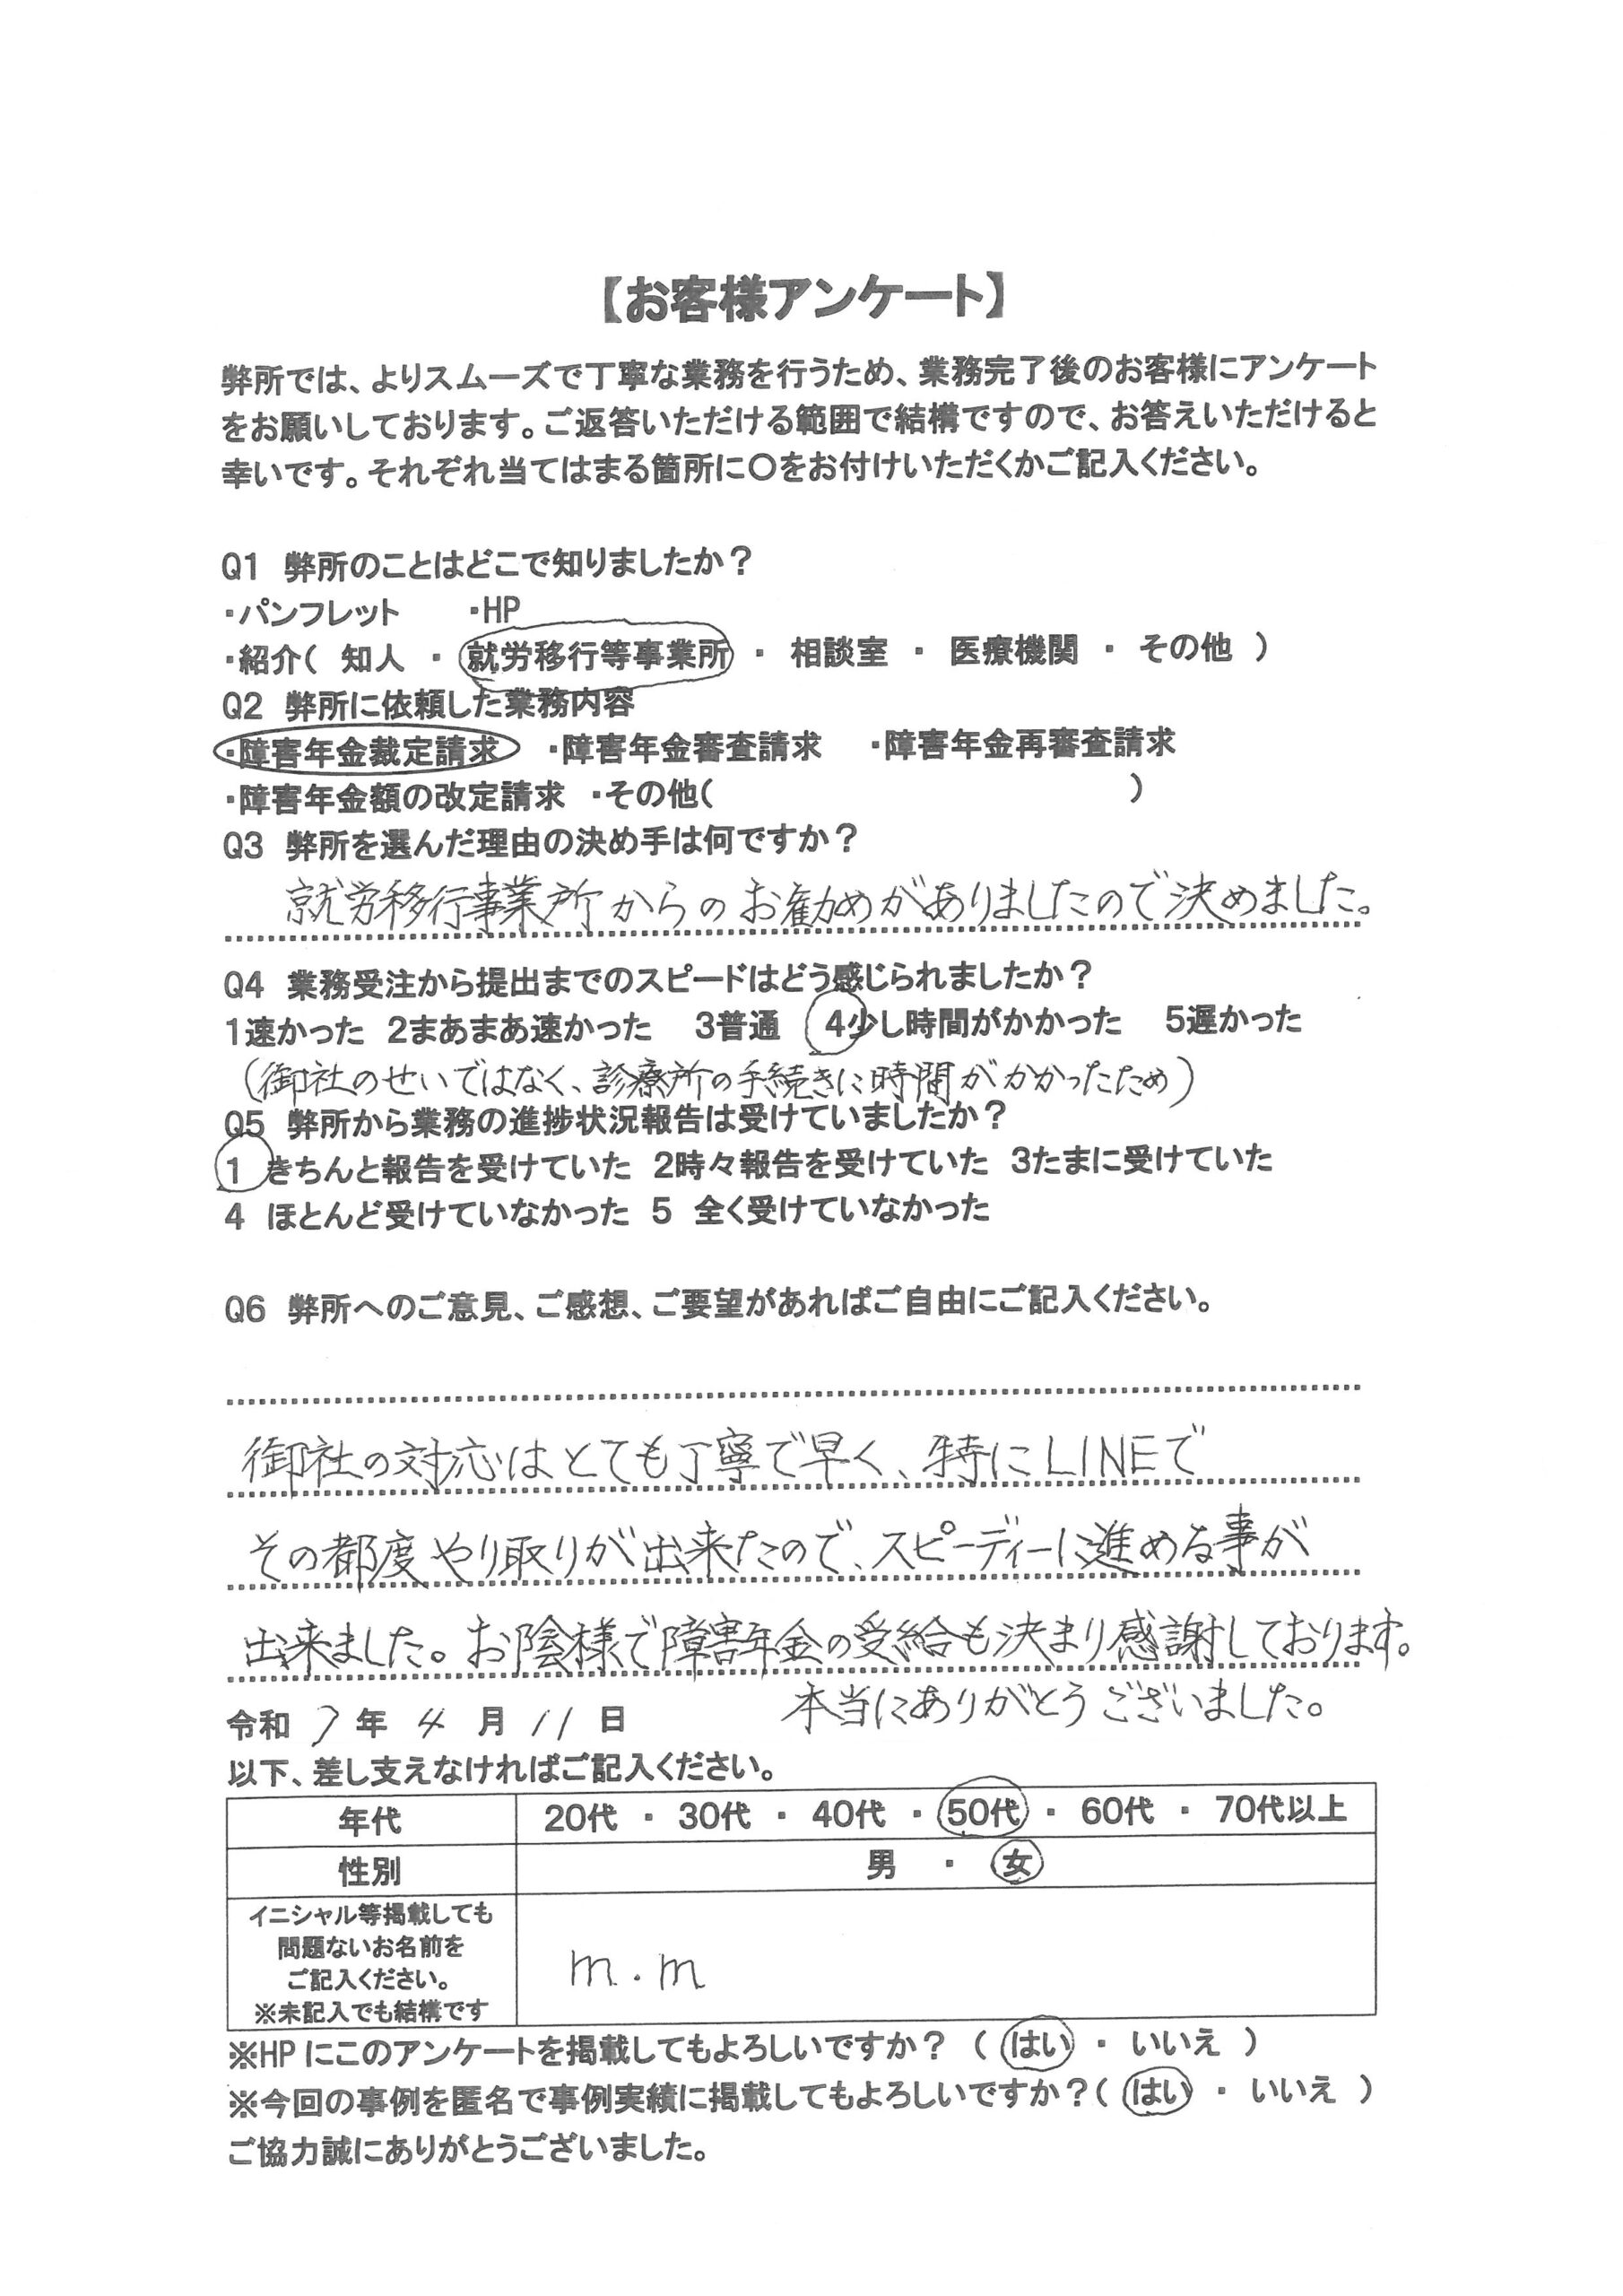 【お客様アンケート】
弊所では、よりスムーズで丁寧な業務を行うため、業務完了後のお客様にアンケート
をお願いしております。ご返答いただける範囲で結構ですので、お答えいただけると
幸いです。それぞれ当てはまる箇所に〇をお付けいただくかご記入ください。
Q1 弊所のことはどこで知りましたか？
・パンフレット ・HP
・紹介( 知人 ・ 就労移行等事業所 ・ 相談室 ・ 医療機関 ・ その他 )
Q2 弊所に依頼した業務内容
・障害年金裁定請求 ・障害年金審査請求 ・障害年金再審査請求
・障害年金額の改定請求 ・その他( )
Q3 弊所を選んだ理由の決め手は何ですか？
就労移行事業所からのお勧めがありましたので決めました。
Q4 業務受注から提出までのスピードはどう感じられましたか？
1速かった 2まあまあ速かった 3普通 4少し時間がかかった 5遅かった
(御社のせいではなく、診療所の手続きに時間がかかったため)
Q5 弊所から業務の進捗状況報告は受けていましたか？
1 きちんと報告を受けていた 2時々報告を受けていた 3たまに受けていた
4 ほとんど受けていなかった 5 全く受けていなかった
Q6 弊所へのご意見、ご感想、ご要望があればご自由にご記入ください。
御社の対応はとても丁寧で早く、特にLINEで
その都度やり取りが出来たので、スピーディーに進める事が
出来ました。お陰様で障害年金の受給も決まり感謝しております。
本当にありがとうございました。
令和 7 年 4 月 11 日
以下、差し支えなければご記入ください。
年代 20代 ・ 30代 ・ 40代 ・ 50代 ・ 60代 ・ 70代以上
性別 男 ・ 女
イニシャル等掲載しても
問題ないお名前を
ご記入ください。
※未記入でも結構です
m.m
※HPにこのアンケートを掲載してもよろしいですか？ ( はい ・ いいえ )
※今回の事例を匿名で事例実績に掲載してもよろしいですか？( はい ・ いいえ )
ご協力誠にありがとうございました。